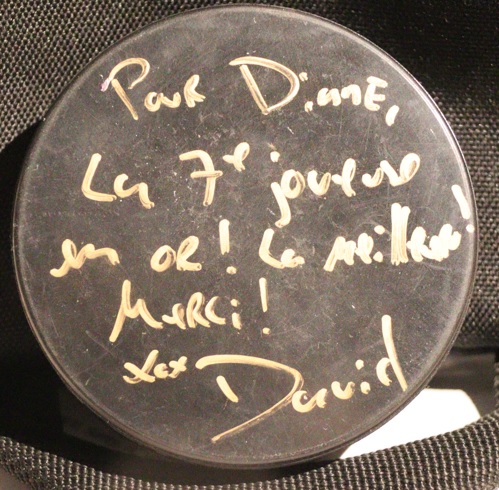 Pour Diane,
La 7e joueuse
en or! La meilleure!
Merci!
xox David